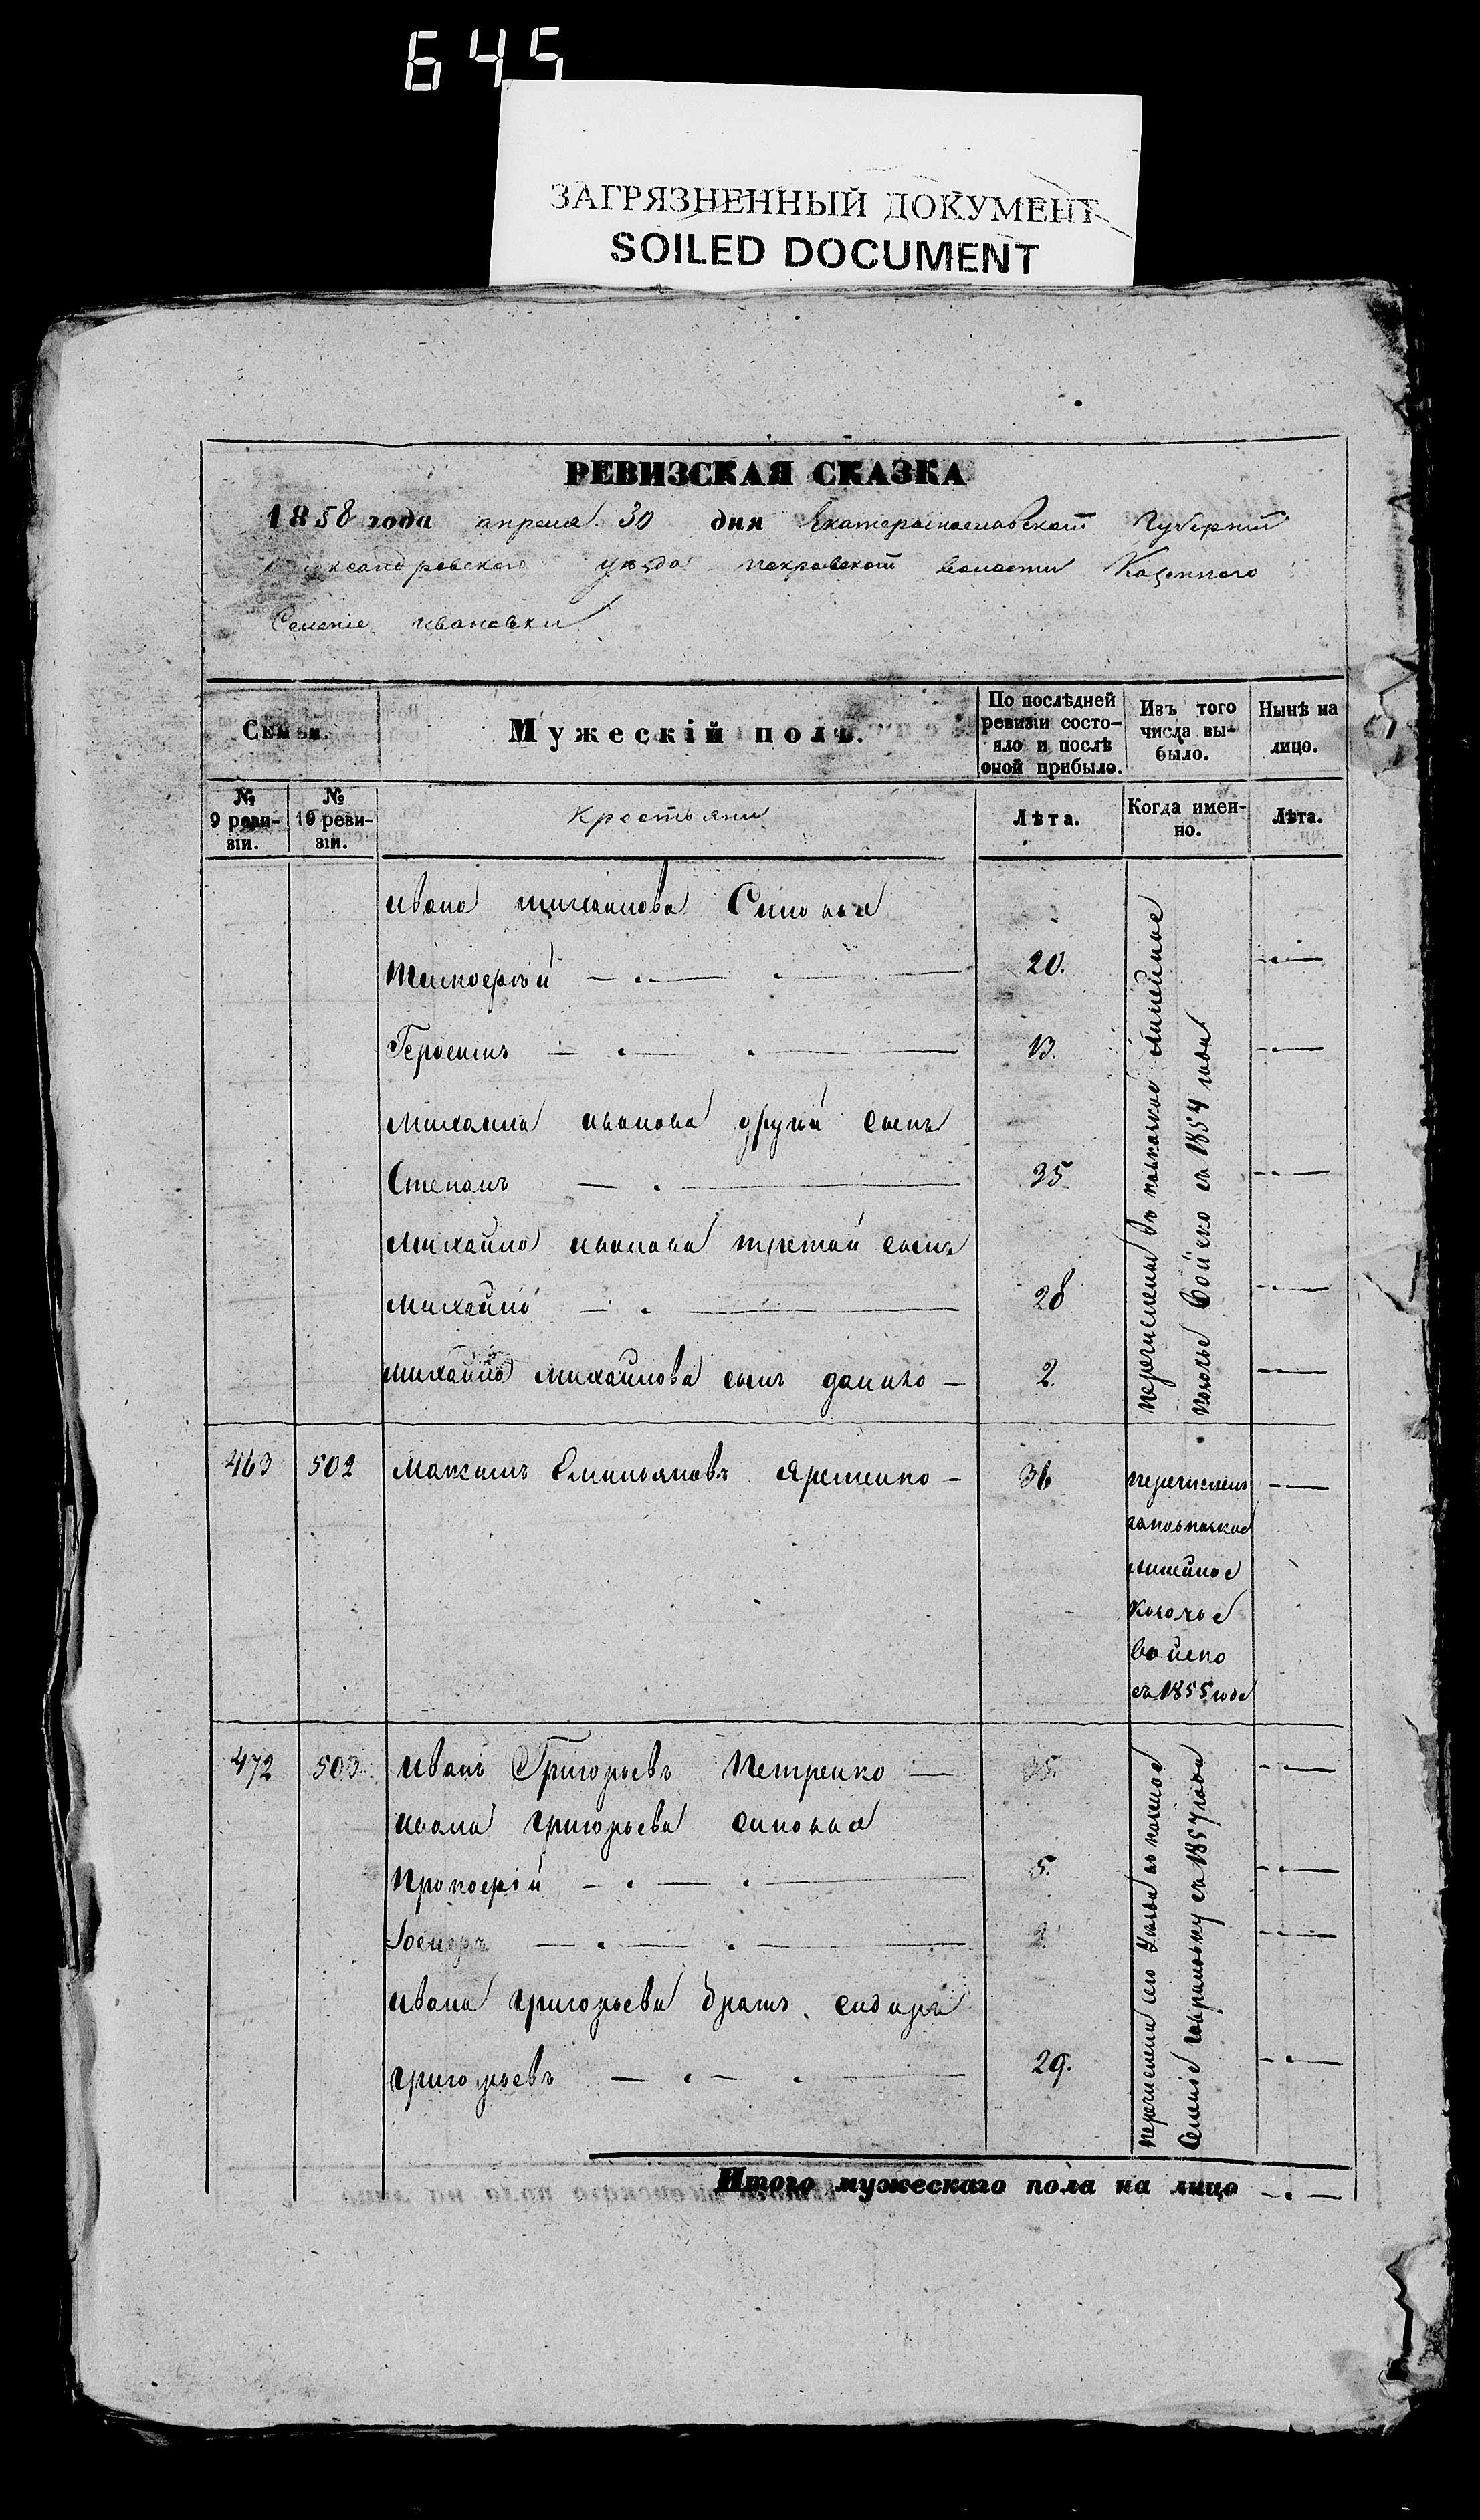 645
ЗАГРЯЗНЕННЫЙ ДОКУМЕНТ
SOILED DOCUMENT
РЕВИЗСКАЯ СКАЗКА
1858 года апреля 30 дня Екатеринославской Губернии
уезда покровской волости Казенного
Селенiе ивановки
Семьи.
Мужескій полъ.
По послѣдней ревизіи состо-яло и послѣ оной прибыло.
Изъ того числа вы-было.
Нынѣ на лицо.
№ 9 реви-зіи.
№ 10 реви-зіи.
крестьяни
Лѣта.
Когда имен-но.
Лѣта.
ивана михаилова Синовья
20.
Герасимъ 13.
михаила иванова другий сынъ
Степанъ 35
михайла иванова третий сынъ
михайло 28
михайла михаилова сынъ данило 2.
перечислены въ кавказкое линейное
козачье Войско съ 1854 года
463 502 Максимъ Емильяновъ Яременко 36
перечисленъ
линейное
козачье
войско
съ 1855 года
472 503 иванъ Григорьевъ Петренко 35
ивана григорьева синовья
Прокофiй 5.
ивана григорьева братъ сидиръ
григорьевъ 29.
перечислены сего уезда
Селенiе съ 1857 года
Итого мужескаго пола на лицо